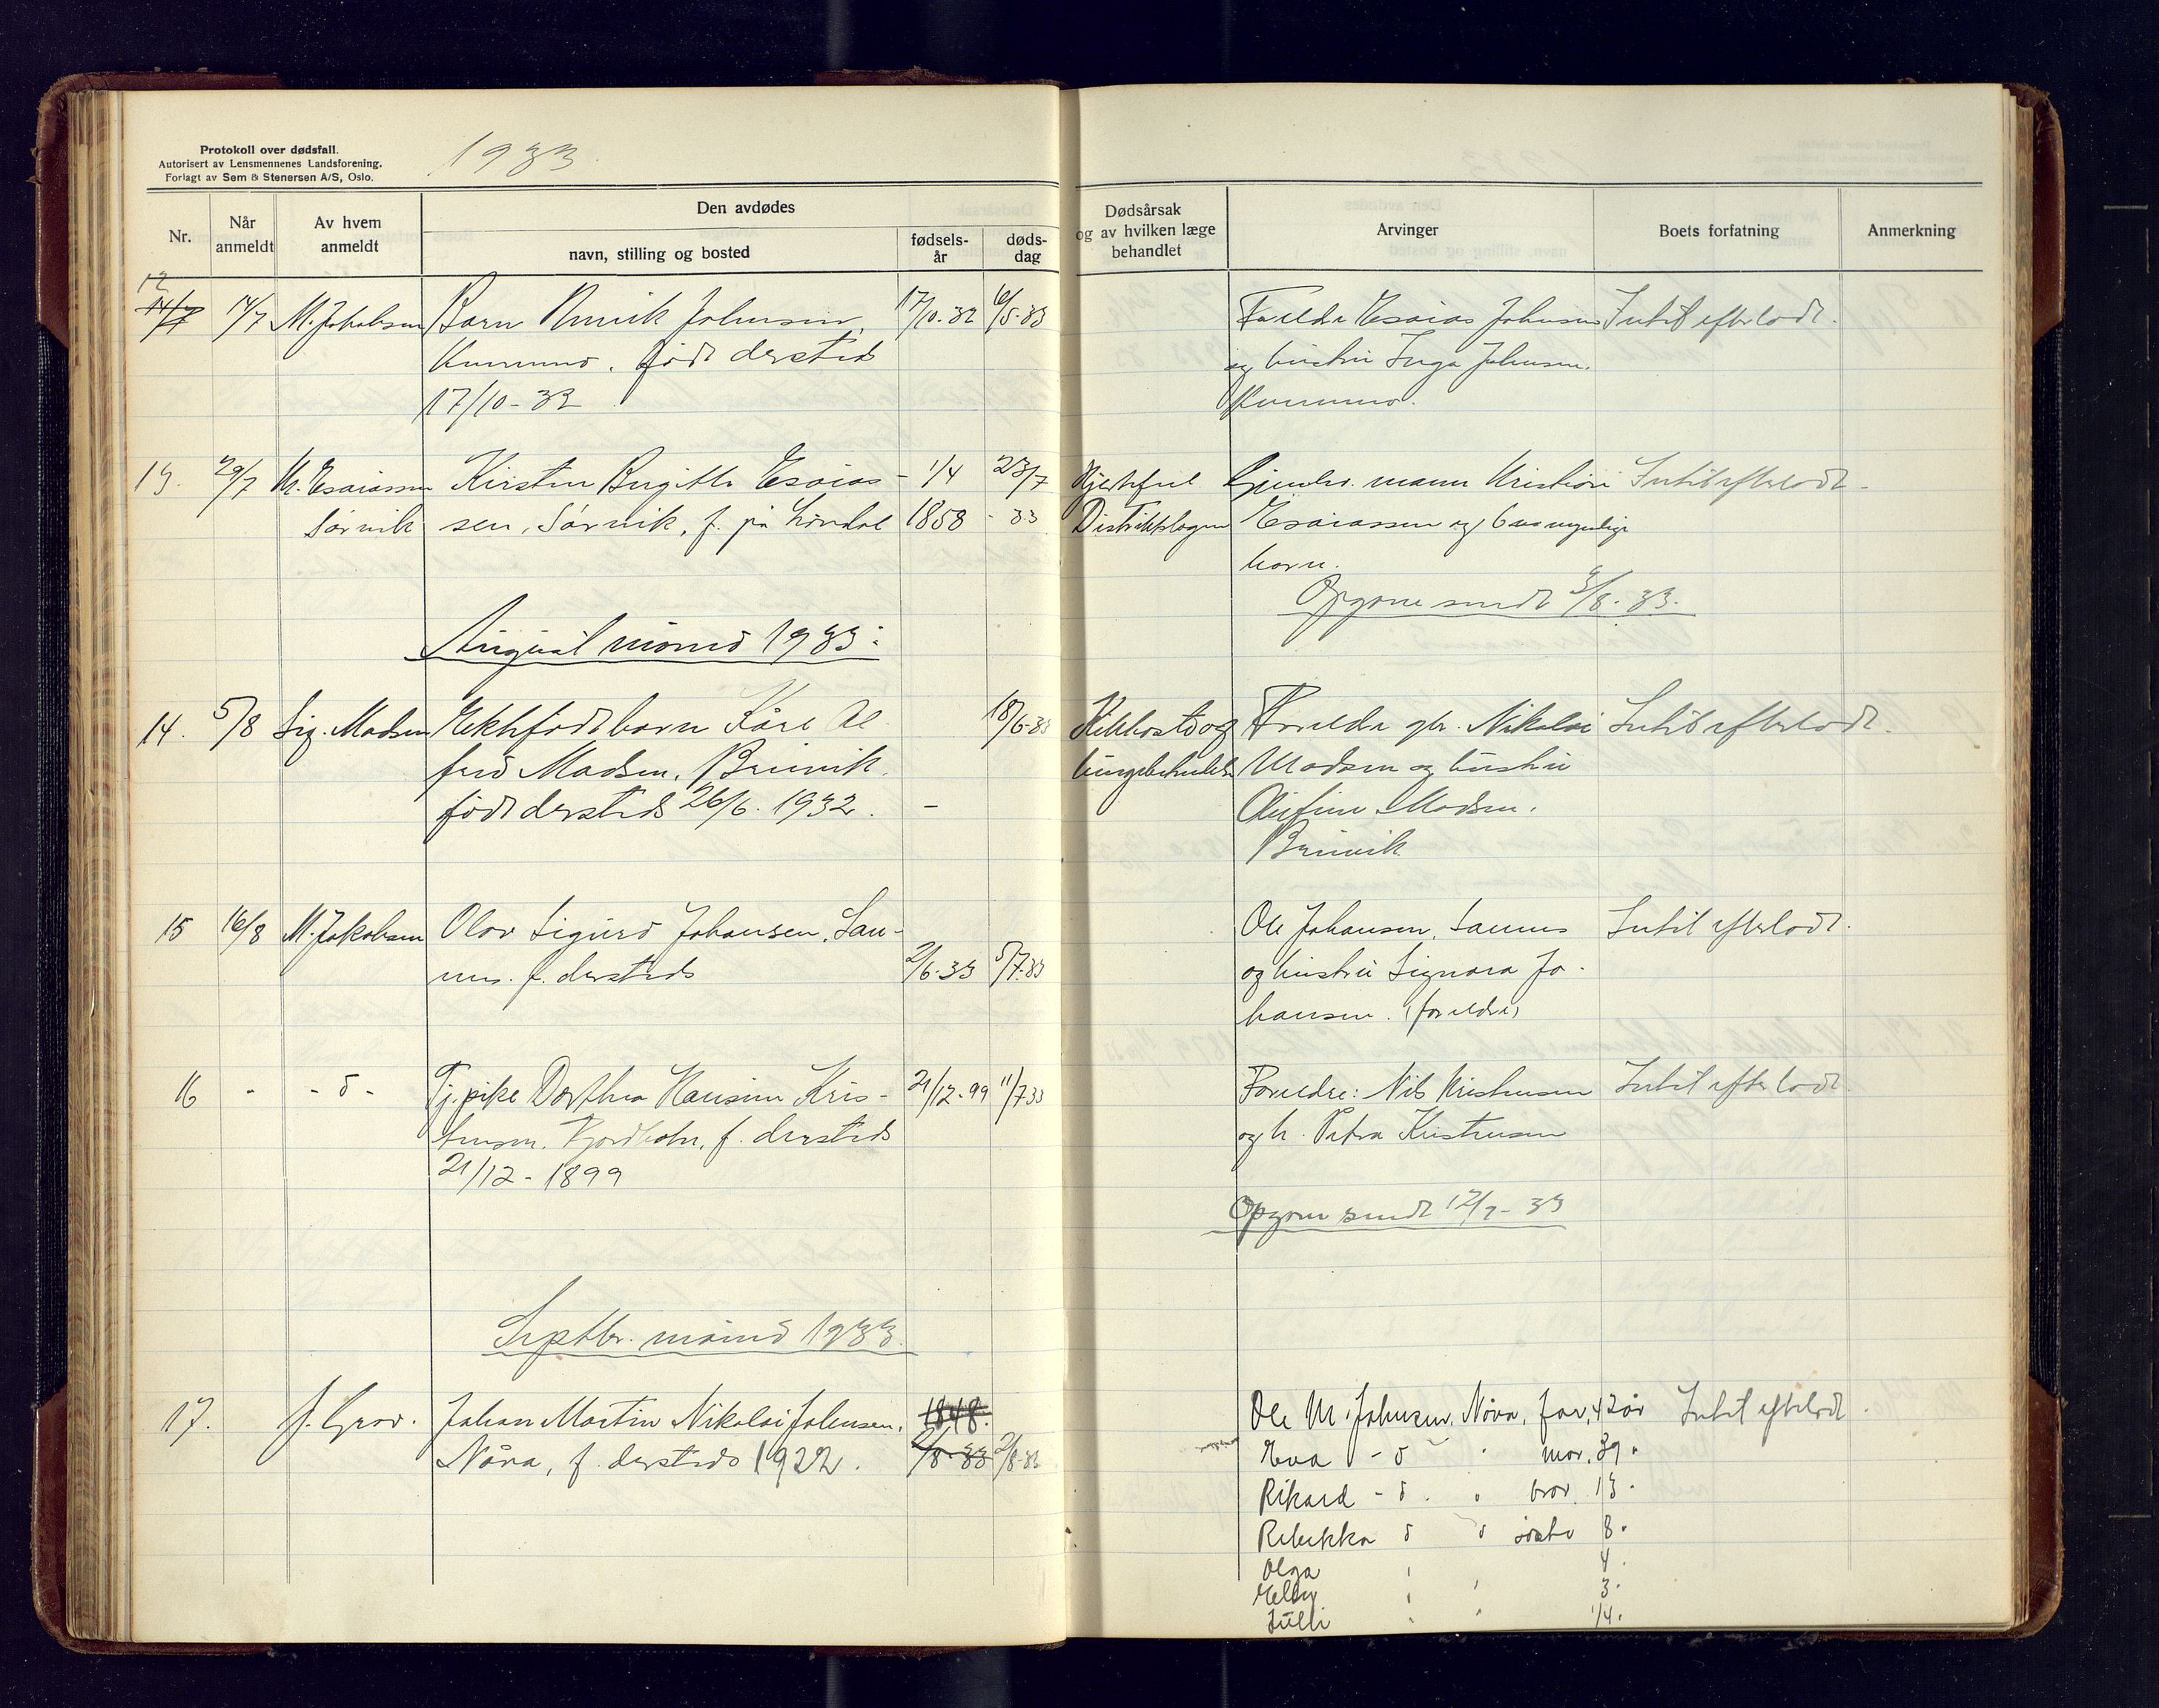 Protokoll over dødsfall.
Autorisert av Lensmennenes Landsforening.
Forlagt av Sem & Stenersen A/S, Oslo.
1933
Nr.
Når anmeldt
Av hvem anmeldt
Den avdødes
navn, stilling og bosted
fødsels-år
døds-dag
Dødsårsak og av hvilken læge behandlet
Arvinger
Boets forfatning
Anmerkning
12
14/7 14/7 M. Jakobsen Barn Johnsen, 17/10-32 6/5-33 Foreldre Esaias Johnsen Intet efterlodt.
født dersteds og hustru Inga Johnsen.
17/10-32
13. 29/7 Kr. Esaiassen Kirstin Birgitte Esaias- 1/4 23/7 Hjertefeil Gjenlev. mann Kristian Intet efterlodt
Sørvik sen, Sørvik, f. på 1858 -33 Distriktslægen Esaiassen og 6
born.
Opgave sendt 3/8-33.
August måned 1933.
14. 5/8 Sig. Madsen Ektefødt barn Kåre Al- 18/6-33 Kikhoste og Foreldre gbr. Nikolai Intet efterlodt.
fred Madsen, lungebetendelse Madsen og hustru
født dersteds 26/6-1932. - Madsen.
15 16/8 M. Jakobsen Olav Sigurd Johansen, San- Ole Johansen, Sannes Intet efterlodt.
nes. f. dersteds 2/6-33 5/7-33 og hustru Signora Jo-
hansen. (foreldre)
16 - - d - Tj.pike Dorthea Hansine Kris- 21/12-99 11/7 33 Foreldre: Nils Kristensen Intet efterlodt.
tensen, Fjordbotn, f. dersteds og h. Petra Kristensen
21/12-1899
Opgave sendt 12/7-33
Septbr. måned 1933.
17. J. Grov. Johan Martin Nikolai Johnsen, 1848. Ole M. Johnsen, Nøva, far, 42 år Intet efterlodt.
Nøva, f. dersteds 1922. 2/8-33 2/8-33 Eva - d - " mor. 39 "
Rikard - d. " bror 13 "
Rebekka d d søster 8 "
Olga " 4 "
Elly " " 3 "
" " 1/4 "